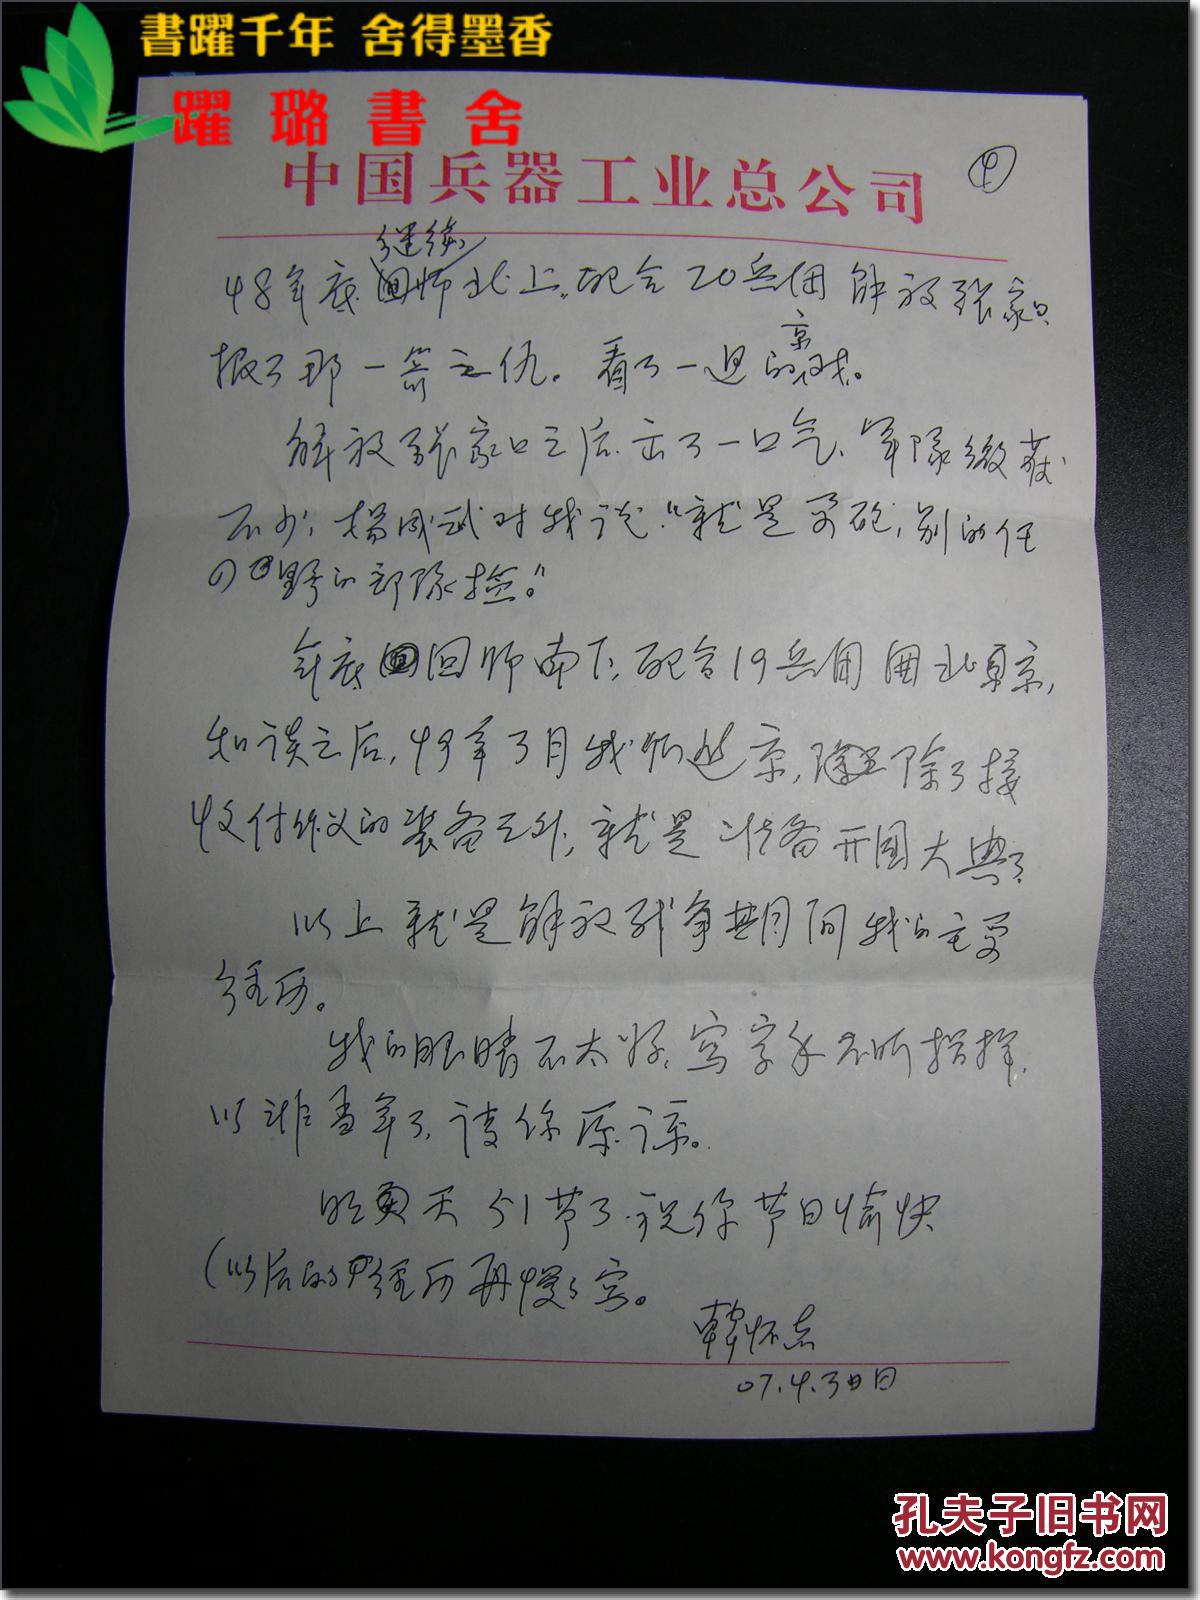 書躍千年 舍得墨香
躍璐書舍
中国兵器工业总公司
④
继续
48年底师北上,配合20兵团解放张家口,
京
报了那一箭之仇。看了一过的戏。
解放张家口之后,出了一口气,军队缴获
不少,杨成武对我说:“就是要砲,别的任
野的部队捡。”
年底回师南下,配合19兵团围北京,
和谈之后,49年3月我师进京,除了接
收付作义的装备之外,就是准备开国大典了
以上就是解放战争期间我的主要
经历。
我的眼睛不太好,写字手不听指挥,
以非当年了,请你原谅。
明天51节了,祝你节日愉快
(以后的经历再慢慢写。
韩怀志
07.4.30日
孔夫子旧书网
www.kongfz.com